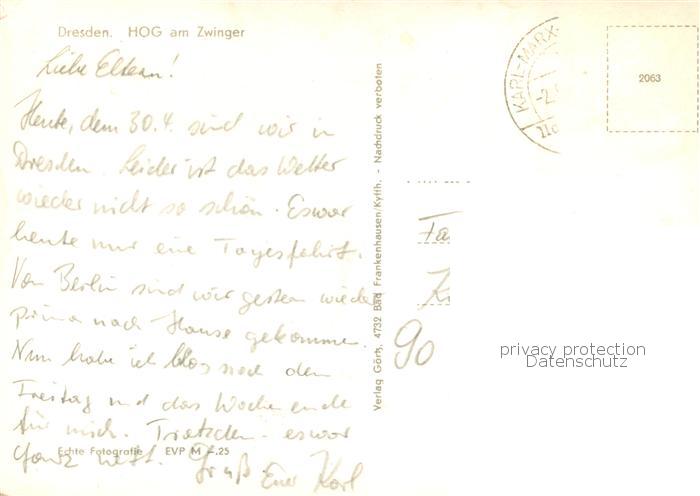 Dresden. HOG am Zwinger
Liebe Eltern!
Heute, dem 30.4. sind wir in
Dresden. Leider ist das Wetter
wieder nicht so schön. Es war
heute nur eine Tagesfahrt.
Von Berlin sind wir gestern wieder
prima nach Hause gekommen.
Nun habe ich blos noch den
Freitag und das Wochenende
für mich. Trotzdem es war
ganz nett. Gruß Euer Karl
Echte Fotografie EVP M -.25
Verlag Görtz, 4732 Bad Frankenhausen/Kyffh. - Nachdruck verboten
KARL-MARX-
2063
Fa
K
90
privacy protection
Datenschutz